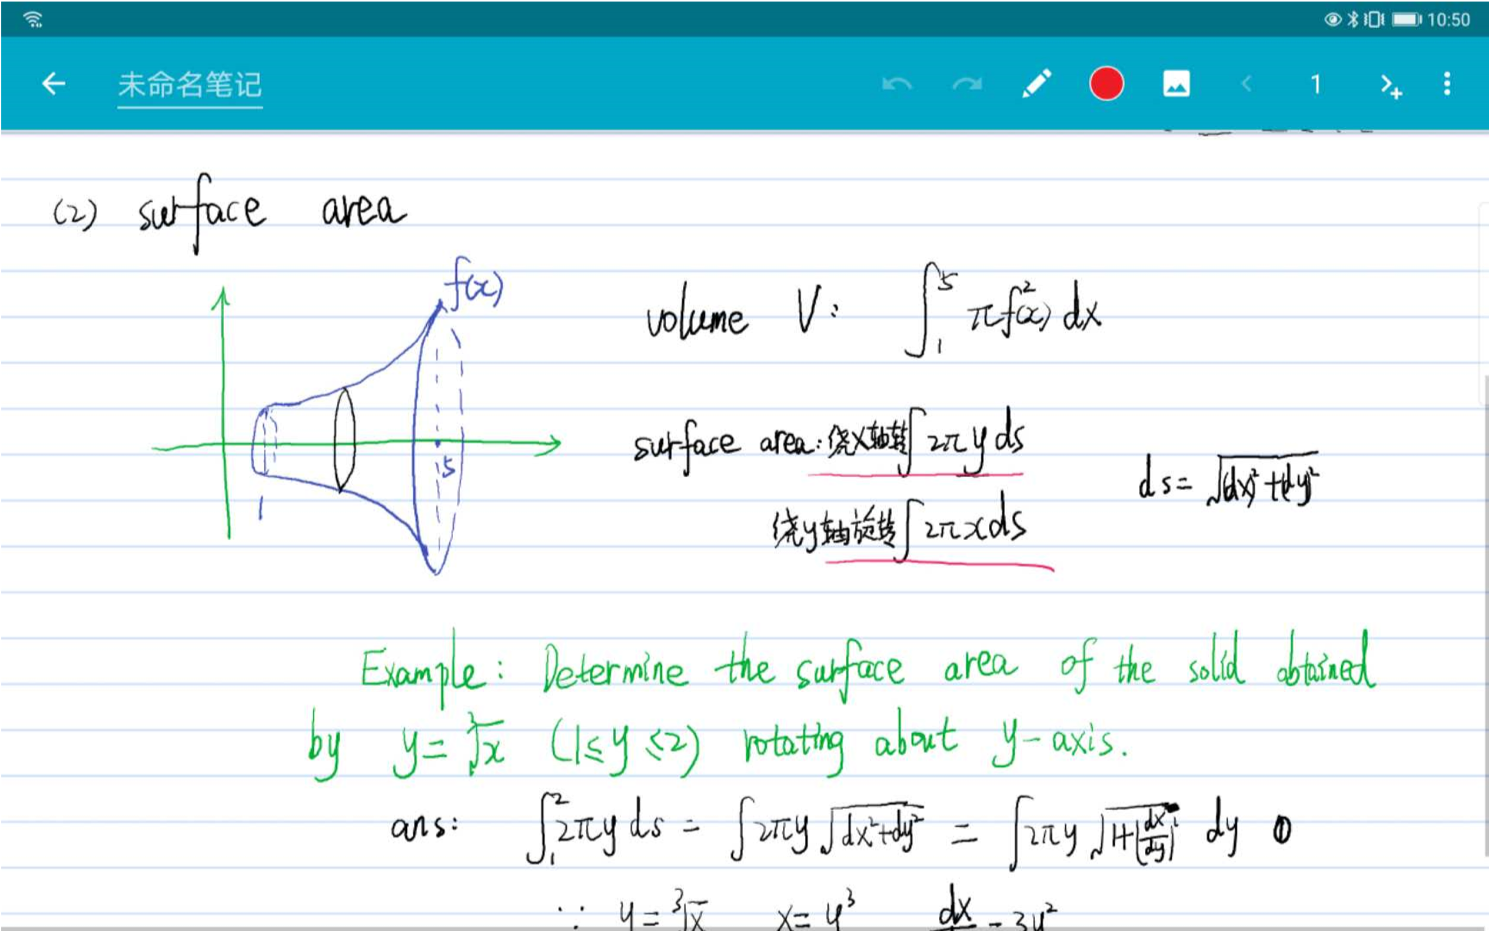 10:50
未命名笔记 1
(2) surface area
f(x)
volume V: ∫₁⁵ πf²(x) dx
surface area: 绕x轴转∫2πy ds
5
1
ds = √(dx)²+(dy)²
绕y轴旋转∫2πx ds
Example: Determine the surface area of the solid obtained
by y = ∛x (1≤y≤2) rotating about y-axis.
ans: ∫₁² 2πy ds = ∫2πy √dx²+dy² = ∫2πy √1+(dx/dy)² dy ①
∵ y = ∛x x = y³ dx = 3y²